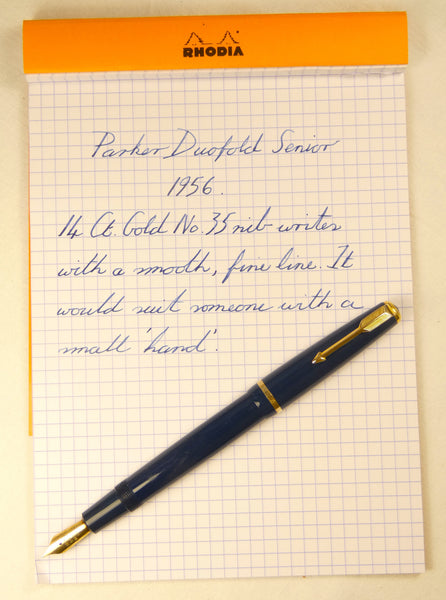 RHODIA
Parker Duofold Senior
1956.
14 Ct. Gold No. 35 nib writes
with a smooth, fine line. It
would suit someone with a
small 'hand'.